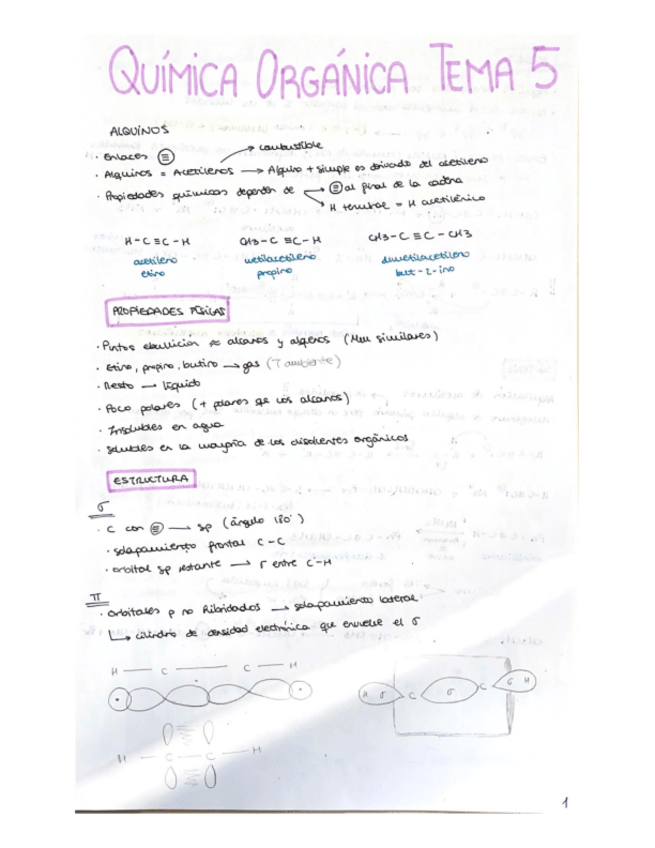 QUÍMICA ORGÁNICA TEMA 5
ALQUINOS
· Enlaces ≡
→ combustible
· Alquinos = Acetilenos → Alquino + simple es derivado del acetileno
· Propiedades químicas dependen de → ≡ al final de la cadena
→ H terminal = H acetilénico
H-C≡C-H
CH3-C≡C-H
CH3-C≡C-CH3
acetileno
metilacetileno
dimetilacetileno
etino
propino
but-2-ino
PROPIEDADES FÍSICAS
· Puntos ebullición ≈ alcanos y alquenos (Muy similares)
· Etino, propino, butino → gas (T ambiente)
· Resto → líquido
· Poco polares (+ polares que los alcanos)
· Insolubles en agua
· Solubles en la mayoría de los disolventes orgánicos
ESTRUCTURA
σ
· C con ≡ → sp (ángulo 180°)
· solapamiento frontal C-C
· orbital sp restante → σ entre C-H
π
· Orbitales p no hibridados → solapamiento lateral
↳ cilindro de densidad electrónica que envuelve el σ
H — C — C — H
H σ C σ C σ H
H — C — C — H
1